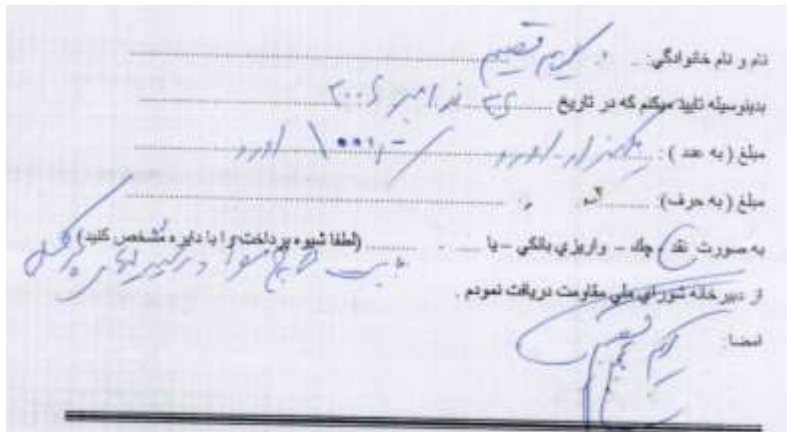 نام و نام خانوادگي: کریم قصیم
بدينوسيله تاييد ميكنم كه در تاريخ ۲۵ نوامبر ۲۰۰۶
مبلغ ( به عدد ) : یکهزار اورو ۱۰۰۰/- اورو
مبلغ ( به حرف)
به صورت نقد - چك – واريزي بانكي – يا ........ (لطفا شيوه پرداخت را با دايره مشخص كنيد)
بابت
از دبيرخانه شوراي ملي مقاومت دريافت نمودم .
امضا:
کریم قصیم